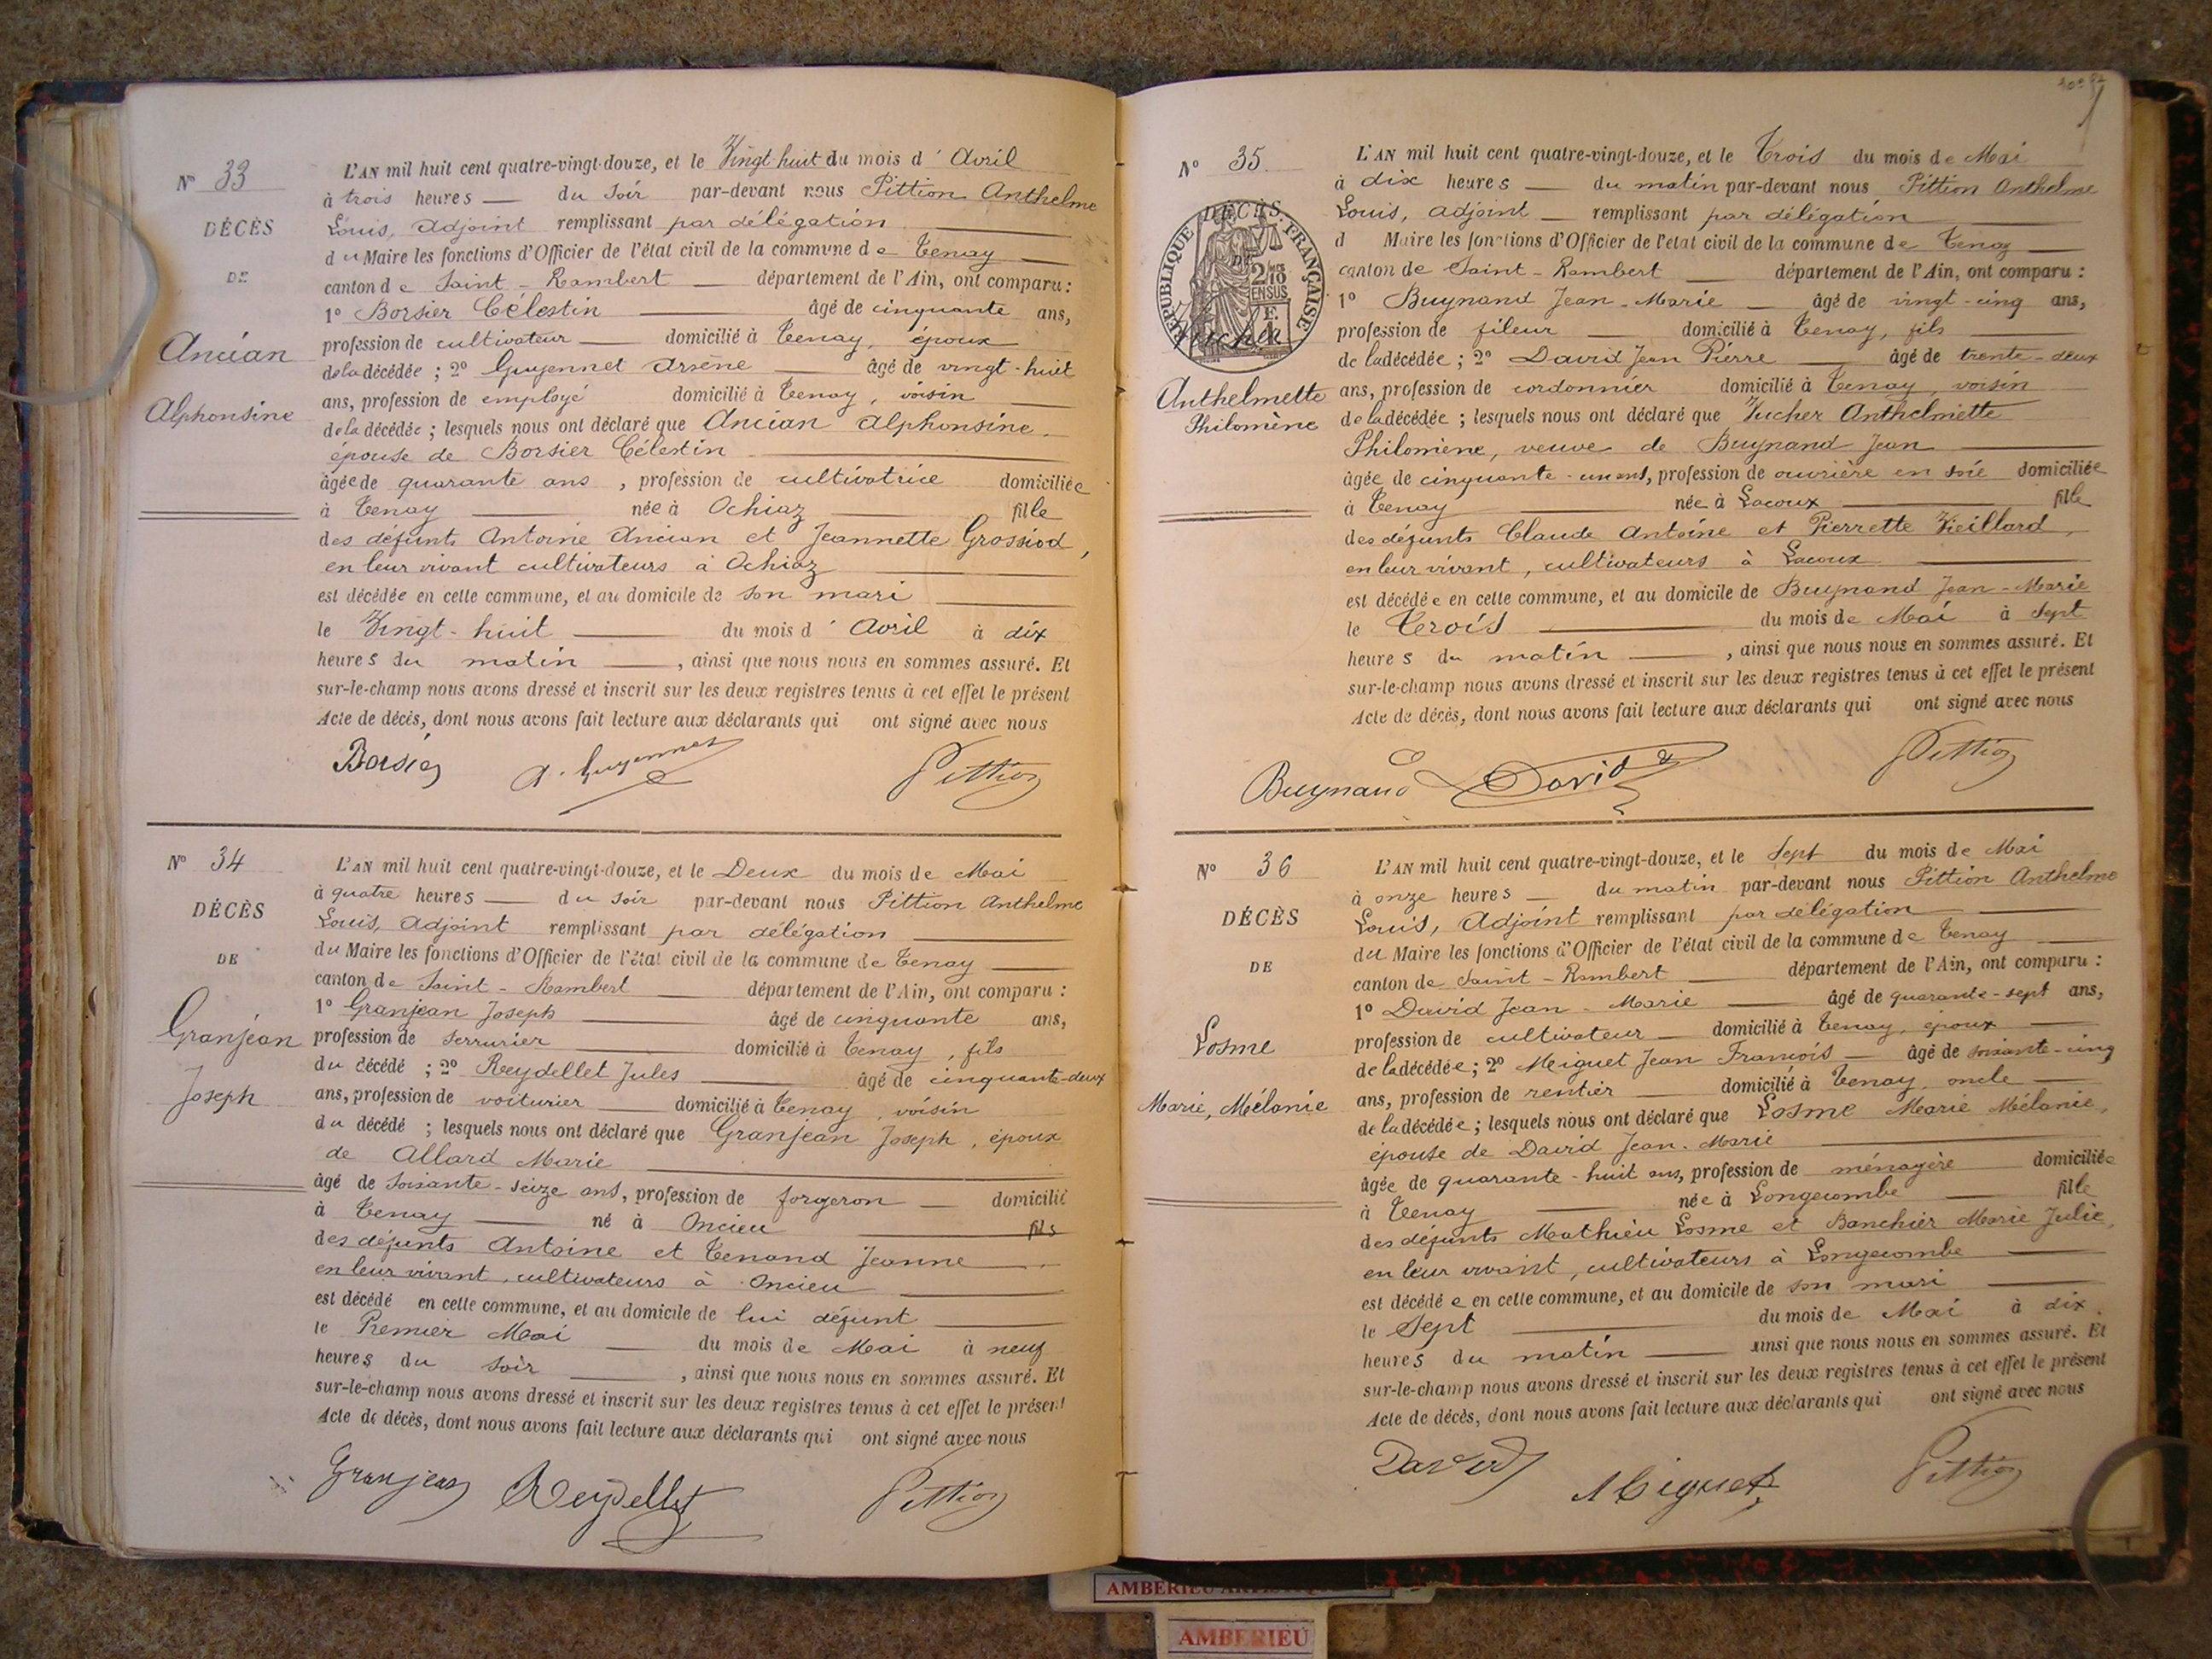 N° 33
DÉCÈS
DE
Ancian
Alphonsine
L'AN mil huit cent quatre-vingt-douze, et le Vingt-huit du mois d'Avril
à trois heures du Soir par-devant nous Pittion Anthelme
Louis, adjoint remplissant par délégation
du Maire les fonctions d'Officier de l'état civil de la commune de Tenay
canton de Saint-Rambert département de l'Ain, ont comparu :
1° Borsier Célestin âgé de cinquante ans,
profession de cultivateur domicilié à Tenay, époux
de la décédée ; 2° Guyennet Arsène âgé de vingt-huit
ans, profession de employé domicilié à Tenay, voisin
de la décédée ; lesquels nous ont déclaré que Ancian Alphonsine,
épouse de Borsier Célestin
âgée de quarante ans, profession de cultivatrice domiciliée
à Tenay née à Ochiaz fille
des défunts Antoine Ancian et Jeannette Grossiod,
en leur vivant cultivateurs à Ochiaz
est décédée en cette commune, et au domicile de son mari
le Vingt-huit du mois d'Avril à dix
heures du matin, ainsi que nous nous en sommes assuré. Et
sur-le-champ nous avons dressé et inscrit sur les deux registres tenus à cet effet le présent
Acte de décès, dont nous avons fait lecture aux déclarants qui ont signé avec nous
Borsier A. Guyennet Pittion
N° 34
DÉCÈS
DE
Granjean
Joseph
L'AN mil huit cent quatre-vingt-douze, et le Deux du mois de Mai
à quatre heures du soir par-devant nous Pittion Anthelme
Louis, adjoint remplissant par délégation
du Maire les fonctions d'Officier de l'état civil de la commune de Tenay
canton de Saint-Rambert département de l'Ain, ont comparu :
1° Granjean Joseph âgé de cinquante ans,
profession de serrurier domicilié à Tenay, fils
du décédé ; 2° Reydellet Jules âgé de cinquante-deux
ans, profession de voiturier domicilié à Tenay, voisin
du décédé ; lesquels nous ont déclaré que Granjean Joseph, époux
de Allard Marie
âgé de soixante-seize ans, profession de forgeron domicilié
à Tenay né à Oncieu fils
des défunts Antoine et Tenand Jeanne
en leur vivant, cultivateurs à Oncieu
est décédé en cette commune, et au domicile de lui défunt
le Premier Mai du mois de Mai à neuf
heures du soir, ainsi que nous nous en sommes assuré. Et
sur-le-champ nous avons dressé et inscrit sur les deux registres tenus à cet effet le présent
Acte de décès, dont nous avons fait lecture aux déclarants qui ont signé avec nous
Granjean Reydellet Pittion
N° 35
DÉCÈS
DE
RÉPUBLIQUE FRANÇAISE
2 10
EN SUS
Vucher
Anthelmette
Philomène
L'AN mil huit cent quatre-vingt-douze, et le Trois du mois de Mai
à dix heures du matin par-devant nous Pittion Anthelme
Louis, adjoint remplissant par délégation
d Maire les fonctions d'Officier de l'état civil de la commune de Tenay
canton de Saint-Rambert département de l'Ain, ont comparu :
1° Buynand Jean-Marie âgé de vingt-cinq ans,
profession de fileur domicilié à Tenay, fils
de la décédée ; 2° David Jean Pierre âgé de trente-deux
ans, profession de cordonnier domicilié à Tenay, voisin
de la décédée ; lesquels nous ont déclaré que Vucher Anthelmette
Philomène, veuve de Buynand Jean
âgée de cinquante-un ans, profession de ouvrière en soie domiciliée
à Tenay née à Lacoux fille
des défunts Claude Antoine et Pierrette Vieillard,
en leur vivant, cultivateurs à Lacoux
est décédée en cette commune, et au domicile de Buynand Jean-Marie
le Trois du mois de Mai à sept
heures du matin, ainsi que nous nous en sommes assuré. Et
sur-le-champ nous avons dressé et inscrit sur les deux registres tenus à cet effet le présent
Acte de décès, dont nous avons fait lecture aux déclarants qui ont signé avec nous
Buynand David Pittion
N° 36
DÉCÈS
DE
Losme
Marie, Mélanie
L'AN mil huit cent quatre-vingt-douze, et le Sept du mois de Mai
à onze heures du matin par-devant nous Pittion Anthelme
Louis, Adjoint remplissant par délégation
du Maire les fonctions d'Officier de l'état civil de la commune de Tenay
canton de Saint-Rambert département de l'Ain, ont comparu :
1° David Jean-Marie âgé de quarante-sept ans,
profession de cultivateur domicilié à Tenay, époux
de la décédée ; 2° Miguet Jean François âgé de soixante-cinq
ans, profession de rentier domicilié à Tenay, oncle
de la décédée ; lesquels nous ont déclaré que Losme Marie Mélanie,
épouse de David Jean-Marie
âgée de quarante-huit ans, profession de ménagère domiciliée
à Tenay née à Longecombe fille
des défunts Mathieu Losme et Banchier Marie Julie,
en leur vivant, cultivateurs à Longecombe
est décédée en cette commune, et au domicile de son mari
le Sept du mois de Mai à dix
heures du matin ainsi que nous nous en sommes assuré. Et
sur-le-champ nous avons dressé et inscrit sur les deux registres tenus à cet effet le présent
Acte de décès, dont nous avons fait lecture aux déclarants qui ont signé avec nous
David Miguet Pittion
AMBERIEU
AMBERIEU